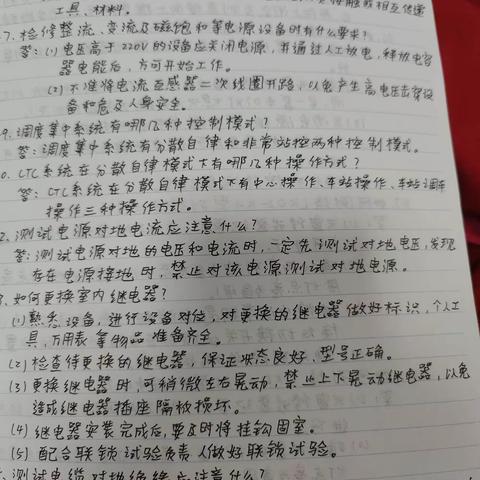 工具、材料。
接触或相互传递
7. 检修整流、变流及磁饱和等电源设备时有什么要求?
答:(1) 电压高于220V的设备应关闭电源,并通过人工放电,释放电容
器电能后,方可开始工作。
(2) 不准将电流互感器二次线圈开路,以免产生高电压击穿设
备和危及人身安全。
9. 调度集中系统有哪几种控制模式?
答:调度集中系统有分散自律和非常站控两种控制模式。
0. CTC系统在分散自律模式下有哪几种操作方式?
答:CTC系统在分散自律模式下有中心操作、车站操作、车站调车
操作三种操作方式。
2. 测试电源对地电流应注意什么?
答:测试电源对地的电压和电流时,一定先测试对地电压,发现
存在电源接地时,禁止对该电源测试对地电源。
3. 如何更换室内继电器?
(1) 熟悉设备,进行设备对位,对更换的继电器做好标识,个人工
具,万用表等物品准备齐全。
(2) 检查待更换的继电器,保证状态良好、型号正确。
(3) 更换继电器时,可稍微左右晃动,禁止上下晃动继电器,以免
造成继电器插座隔板损坏。
(4) 继电器安装完成后,要及时将挂钩固牢。
(5) 配合联锁试验负责人做好联锁试验。
测试电缆对地绝缘应注意什么?